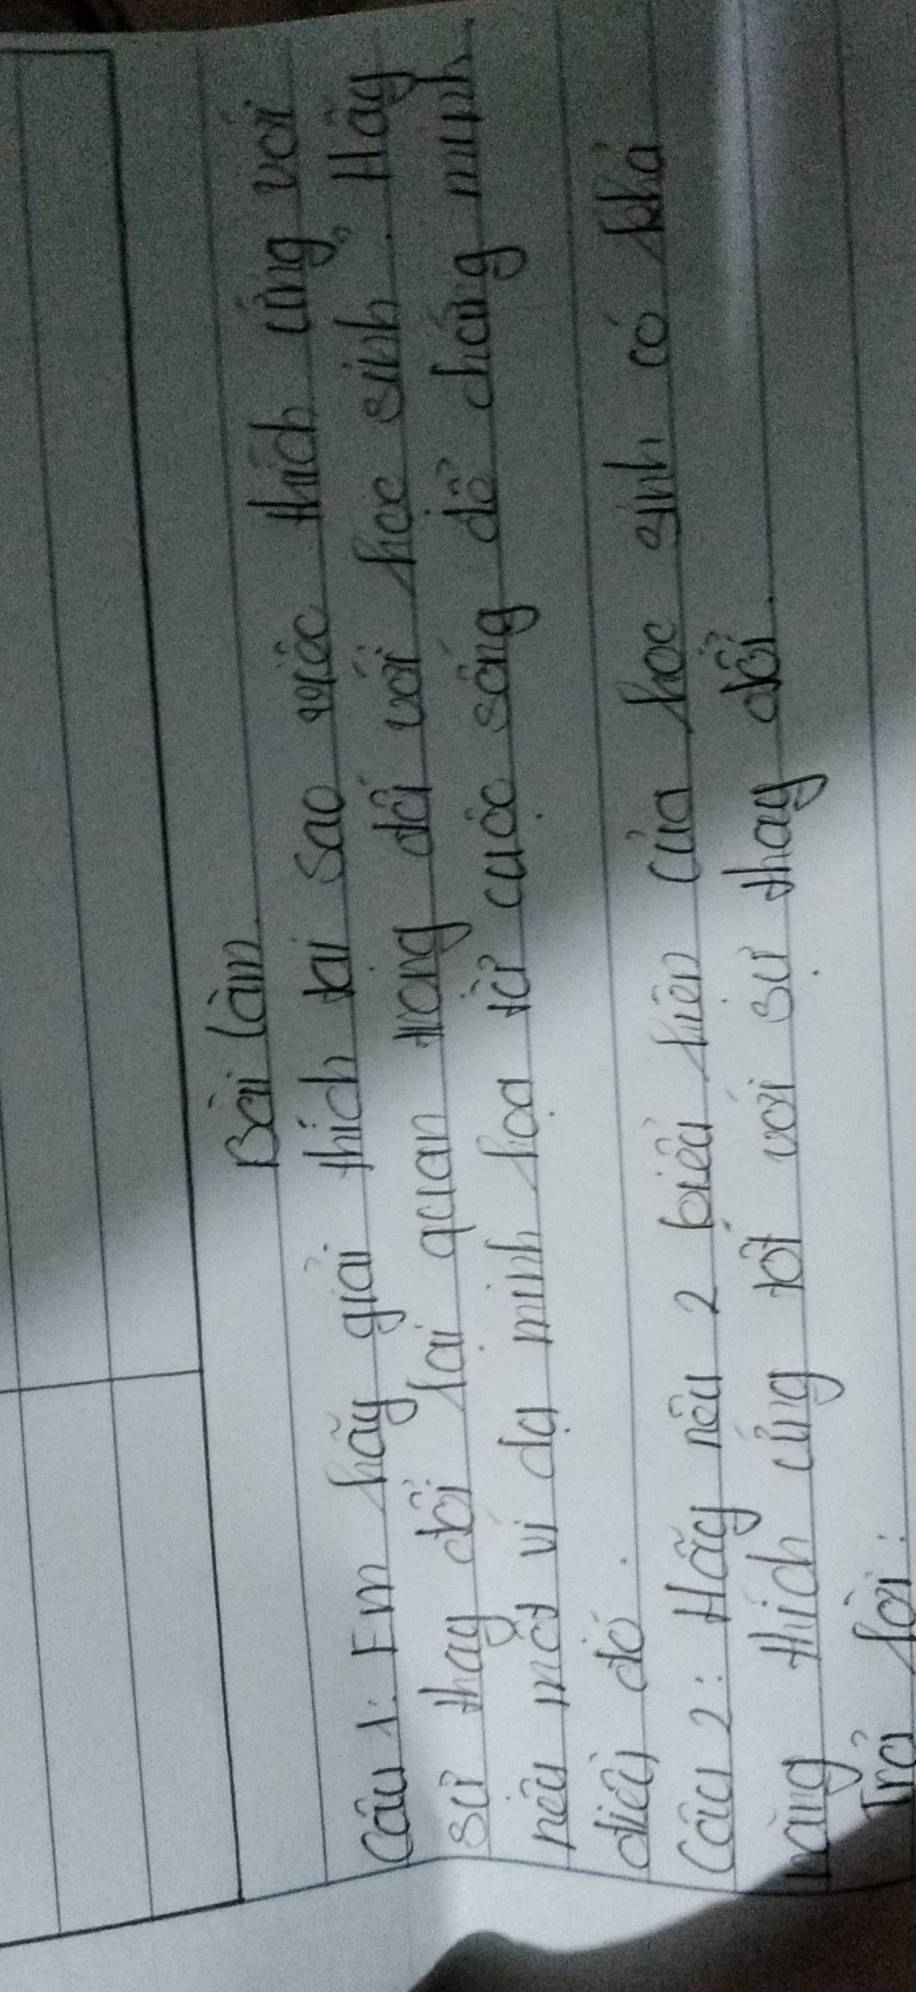 Bài làm
Câu 1: Em hãy giải thích tại sao việc thích ứng với
sự thay đổi lại quan trọng đối với học sinh. Hãy
nêu một ví dụ minh họa từ cuộc sống để chứng minh
điều đó.
Câu 2: Hãy nêu 2 biểu hiện của học sinh có khả
năng thích ứng tốt với sự thay đổi.
Trả lời: